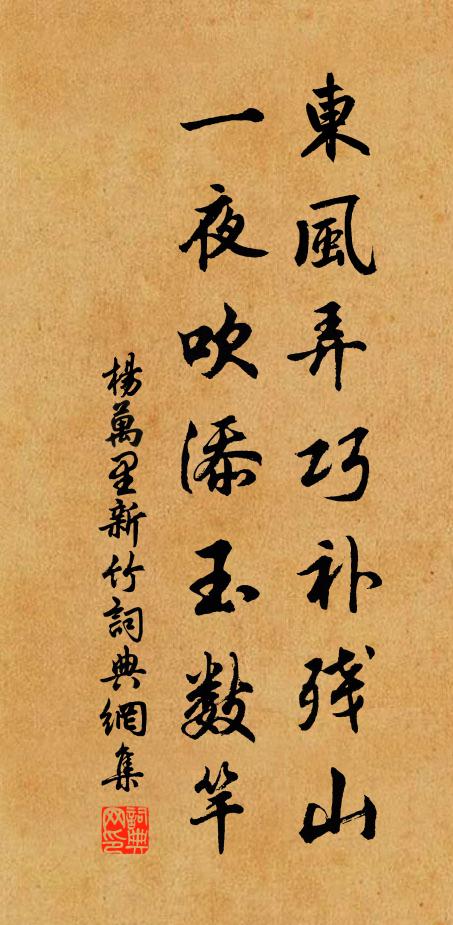 東風弄巧补残山
一夜吹添玉数竿
楊萬里新竹詞典網集
詞典网印